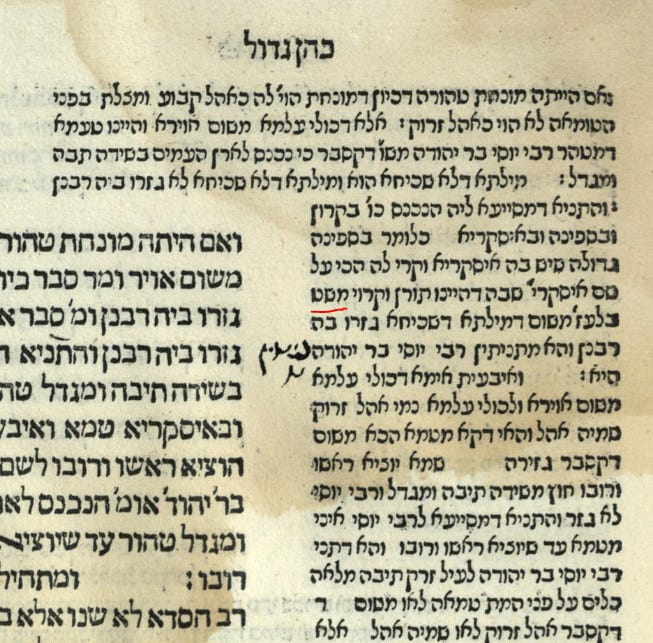 כהן גדול
ואם הייתה מונחת טהורה דכיון דמונחת הוי לה כאהל קבוע ומצלת בפני
הטומאה לא הוי כאהל זרוק: אלא דכולי עלמא משום אוירא והיינו טעמא
דמטהר רבי יוסי בר יהודה משו' דקסבר כי נכנס לארץ העמים בשידה תבה
ומגדל: מילתא דלא שכיחא הוא ומילתא דלא שכיחא לא גזרו ביה רבנן
: והתניא דמסייעא ליה הנכנס כו' בקרון
ובספינה ובאיסקריא כלומר בספינה
גדולה שיש בה איסקריא וקרי לה הכי על
שם איסקרי' שבה דהיינו תורן וקרוי משט
בלעז משום דמילתא דשכיחא גזרו בה
רבנן והא מתניתין רבי יוסי בר יהודה
היא: ואיבעית אימא דכולי עלמא
משום אוירא ולכולי עלמא כמי אהל זרוק
שמיה אהל והאי דקא מטמא הכא משום
דקסבר גזירה שמא יוציא ראשו
ורובו חוץ משידה תיבה ומגדל ורבי יוסי
לא גזר והתניא דמסייעא לרבי יוסי אינו
מטמא עד שיוציא ראשו ורובו והא דתני
רבי יוסי בר יהודה לעיל זרק תיבה מלאה
כלים על פני המת טמאה לאו משום ד
דקסבר אהל זרוק לאו שמיה אהל אלא
ואם היתה מונחת טהור
משום אויר ומר סבר כיו
גזרו ביה רבנן ומ' סבר א
גזרו ביה רבנן והתניא ה
בשידה תיבה ומגדל טה
ובאיסקריא טמא ואיבע
הוציא ראשו ורובו לשם
בר' יהוד' אומ' הנכנס לאר
ומגדל טהור עד שיוציא
רובו: ומתחיל
רב חסדא לא שנו אלא ב